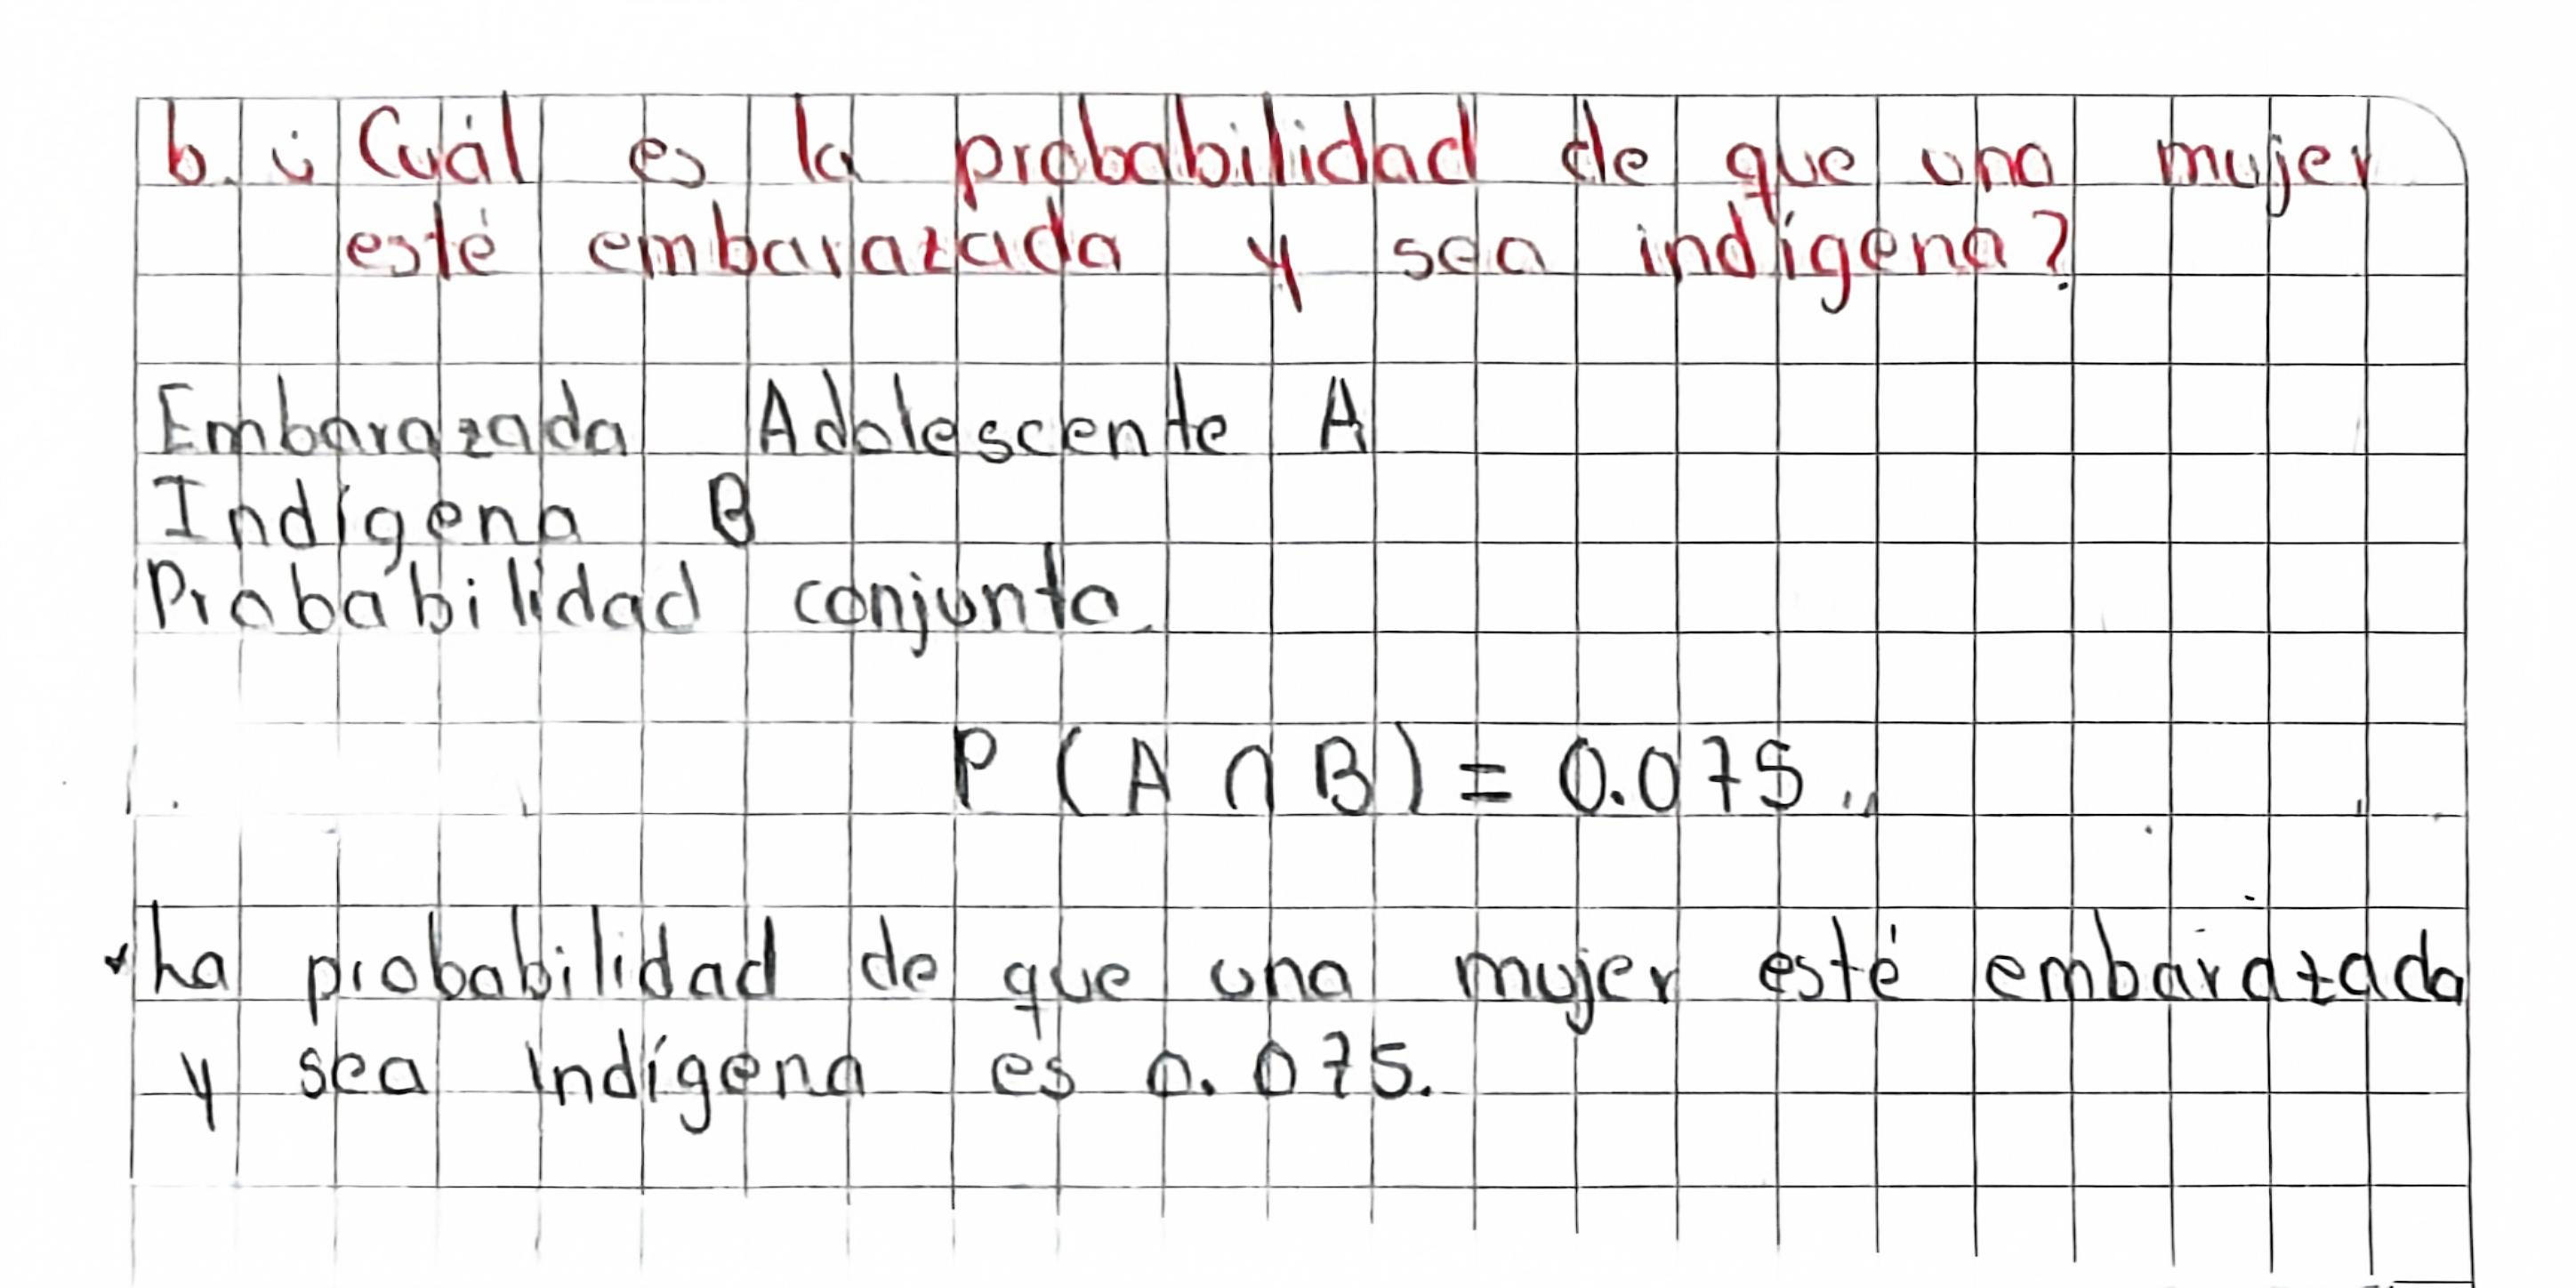 b. ¿Cuál es la probabilidad de que una mujer
esté embarazada y sea indígena?
Embarazada Adolescente A
Indígena B
Probabilidad conjunta.
P(A∩B) = 0.075
La probabilidad de que una mujer esté embarazada
y sea indígena es 0.075.